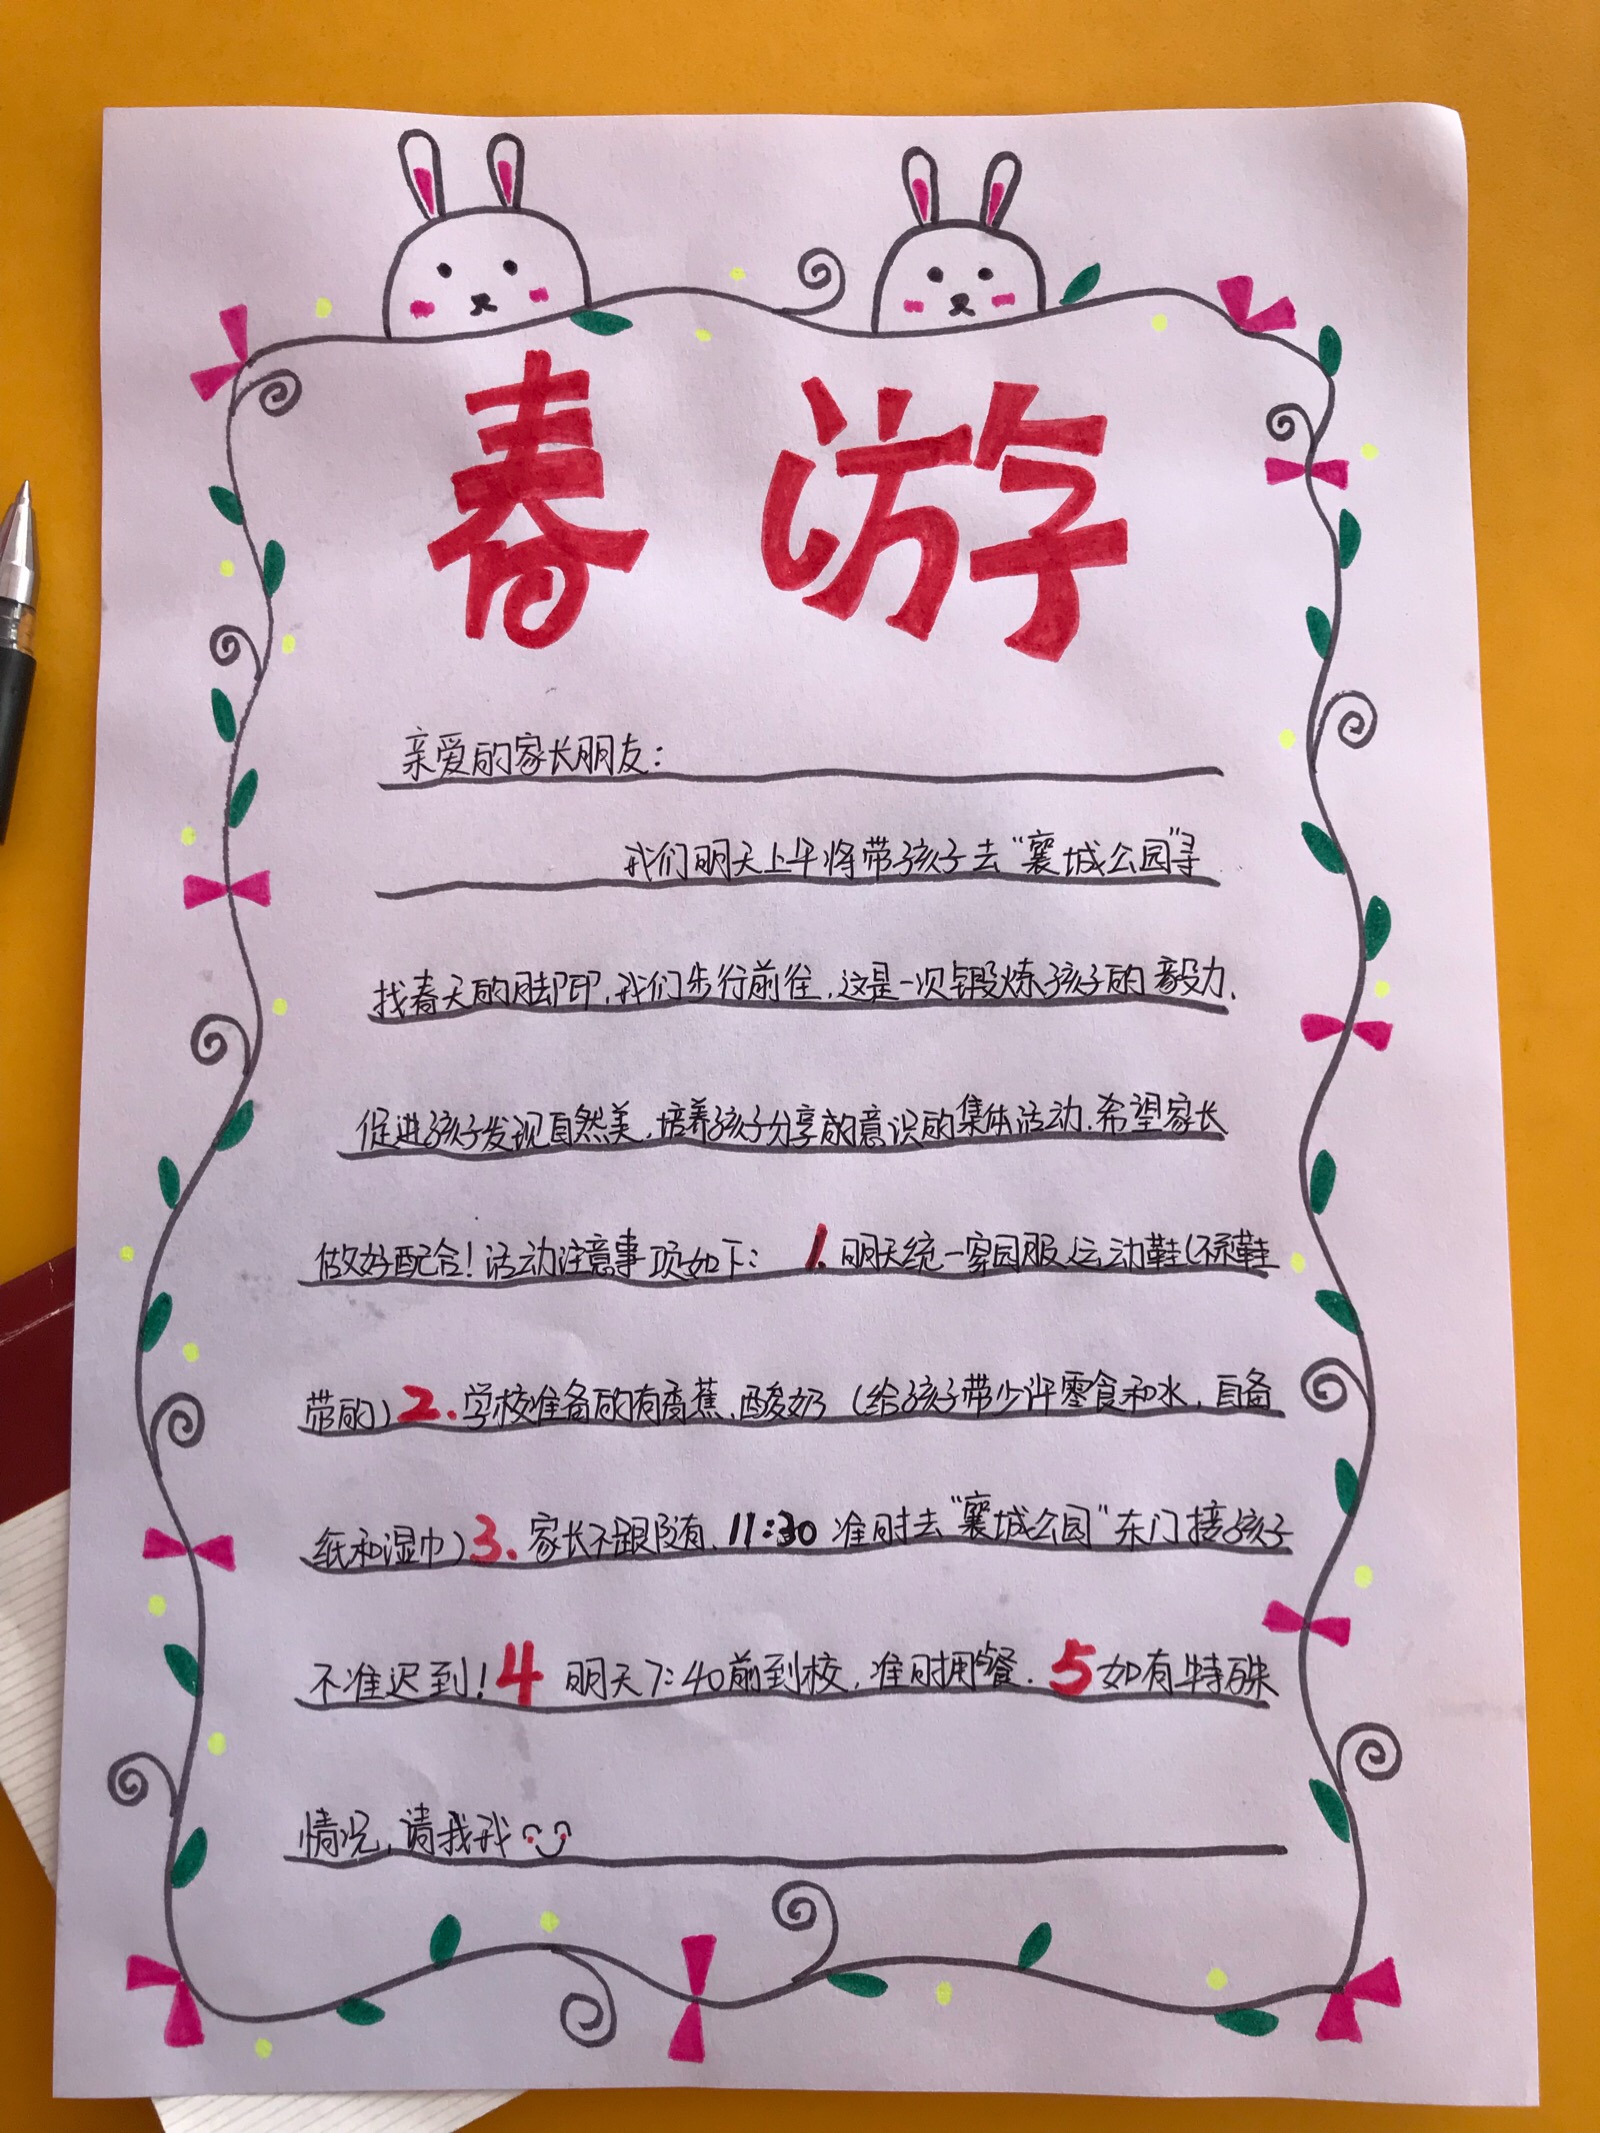 春游
亲爱的家长朋友：
我们明天上午将带孩子去“襄城公园”寻
找春天的脚印，我们步行前往，这是一次锻炼孩子的毅力，
促进孩子发现自然美，培养孩子分享的意识的集体活动，希望家长
做好配合！活动注意事项如下： 1. 明天统一穿园服运动鞋（不系鞋
带的）2. 学校准备的有香蕉、酸奶（给孩子带少许零食和水，自备
纸和湿巾）3. 家长不跟随，11:30 准时去“襄城公园”东门接孩子
不准迟到！4 明天7:40前到校，准时用餐. 5 如有特殊
情况，请找我